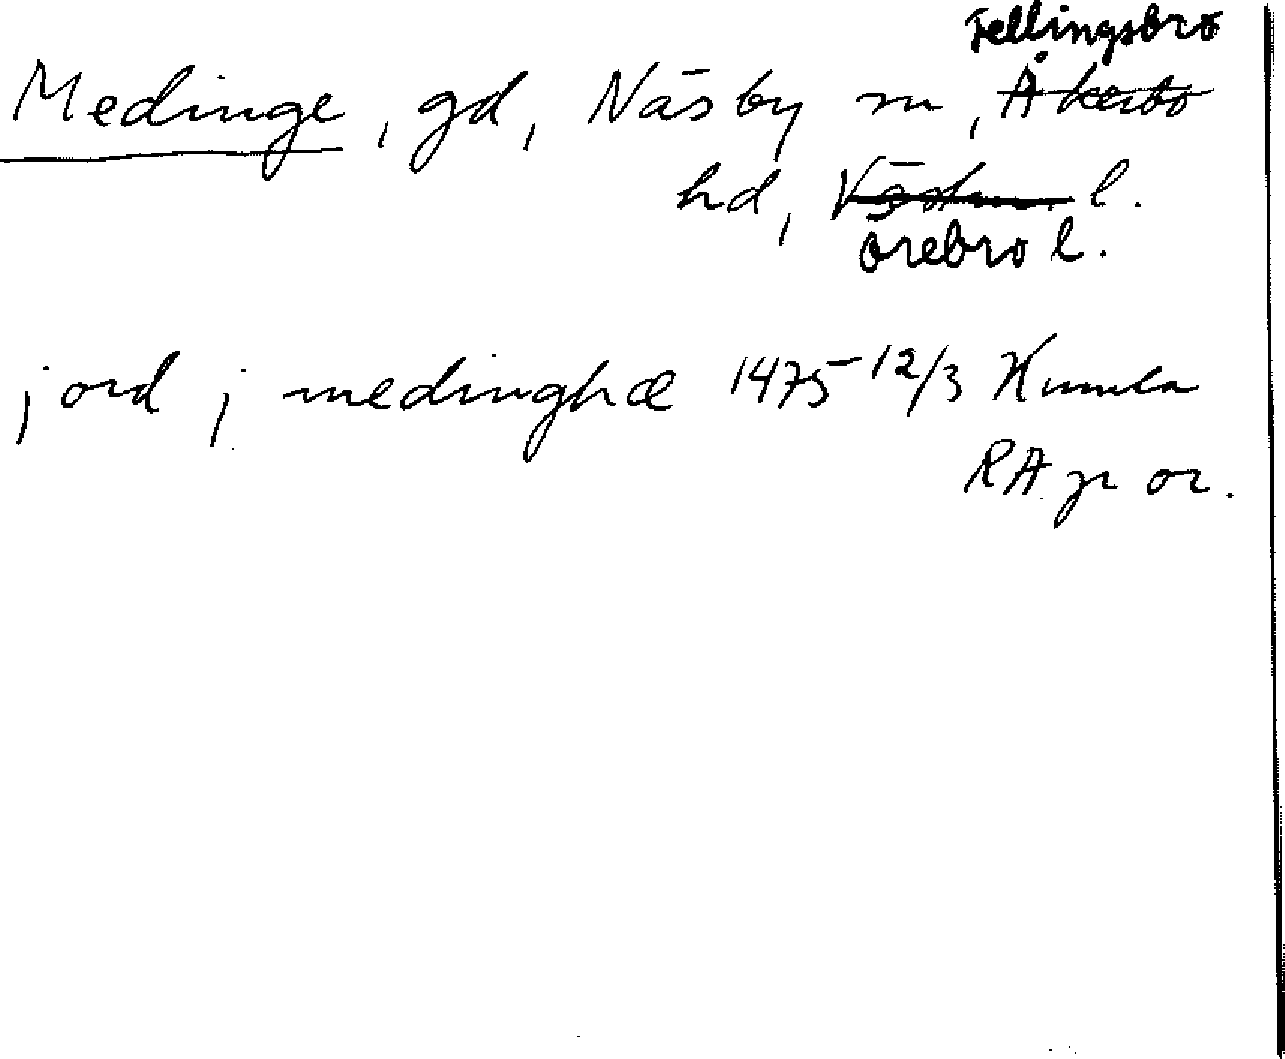 Fellingsbro
Medinge, gd, Näsby sn, Åkerbo
hd, Västm. l.
Örebro l.
jord j medinghæ 1475 12/3 Kumla
RA p or.